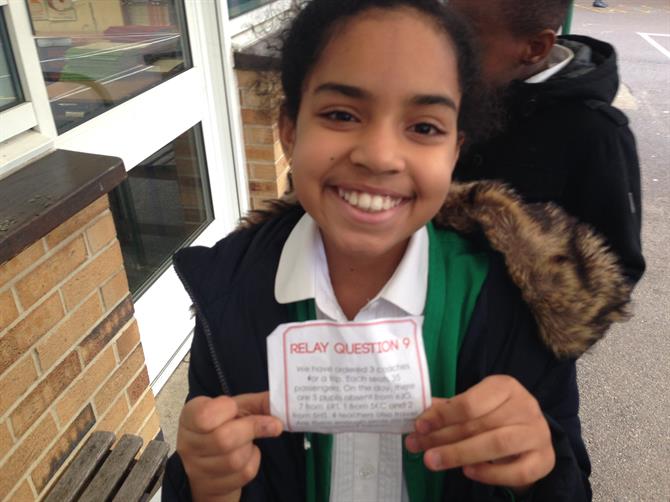 RELAY QUESTION 9
We have ordered 3 coaches
for a trip. Each seats 35
passengers. On the day, there
are 5 pupils absent from 6JG,
7 from 6RT, 1 from 5KC and
2 from 5HS. 4 teachers